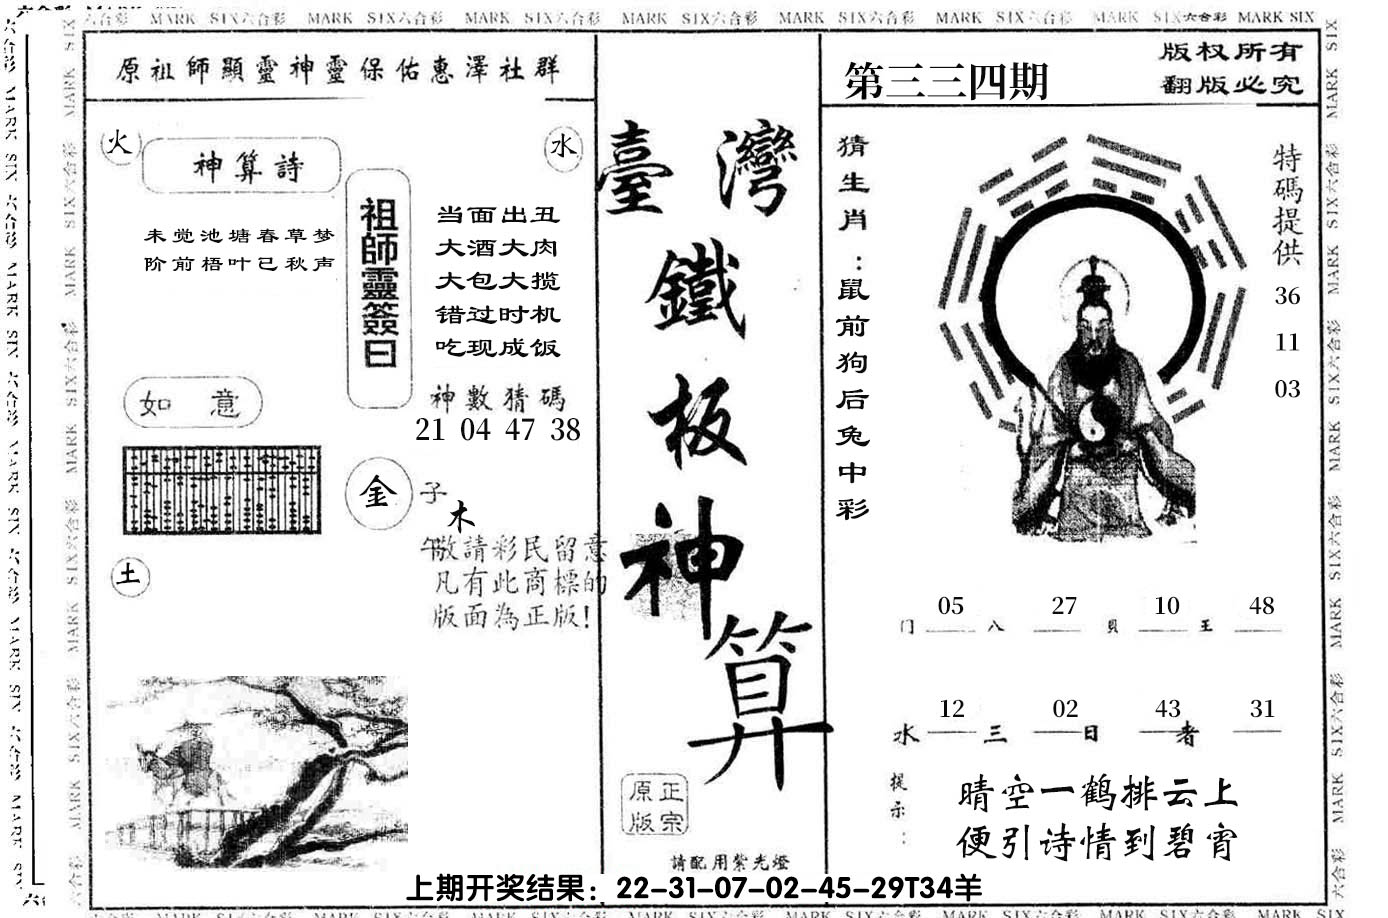 MARK SIX六合彩 MARK SIX六合彩 MARK SIX六合彩 MARK SIX六合彩 MARK SIX六合彩 MARK SIX六合彩 MARK SIX六合彩 MARK SIX
原祖師顯靈神靈保佑惠澤社群
火
神算詩
水
未觉池塘春草梦
阶前梧叶已秋声
祖師靈簽曰
当面出丑
大酒大肉
大包大揽
错过时机
吃现成饭
神數猜碼
21 04 47 38
如意
金
子
木
午
敬請彩民留意
凡有此商標的
版面為正版!
土
臺灣
鐵
板
神
算
正宗
原版
請配用紫光燈
第三三四期
版权所有
翻版必究
猜生肖：鼠前狗后兔中彩
特碼提供
36
11
03
门 05 八 27 贝 10 王 48
水 12 三 02 日 43 者 31
提示：
晴空一鹤排云上
便引诗情到碧宵
上期开奖结果：22-31-07-02-45-29T34羊